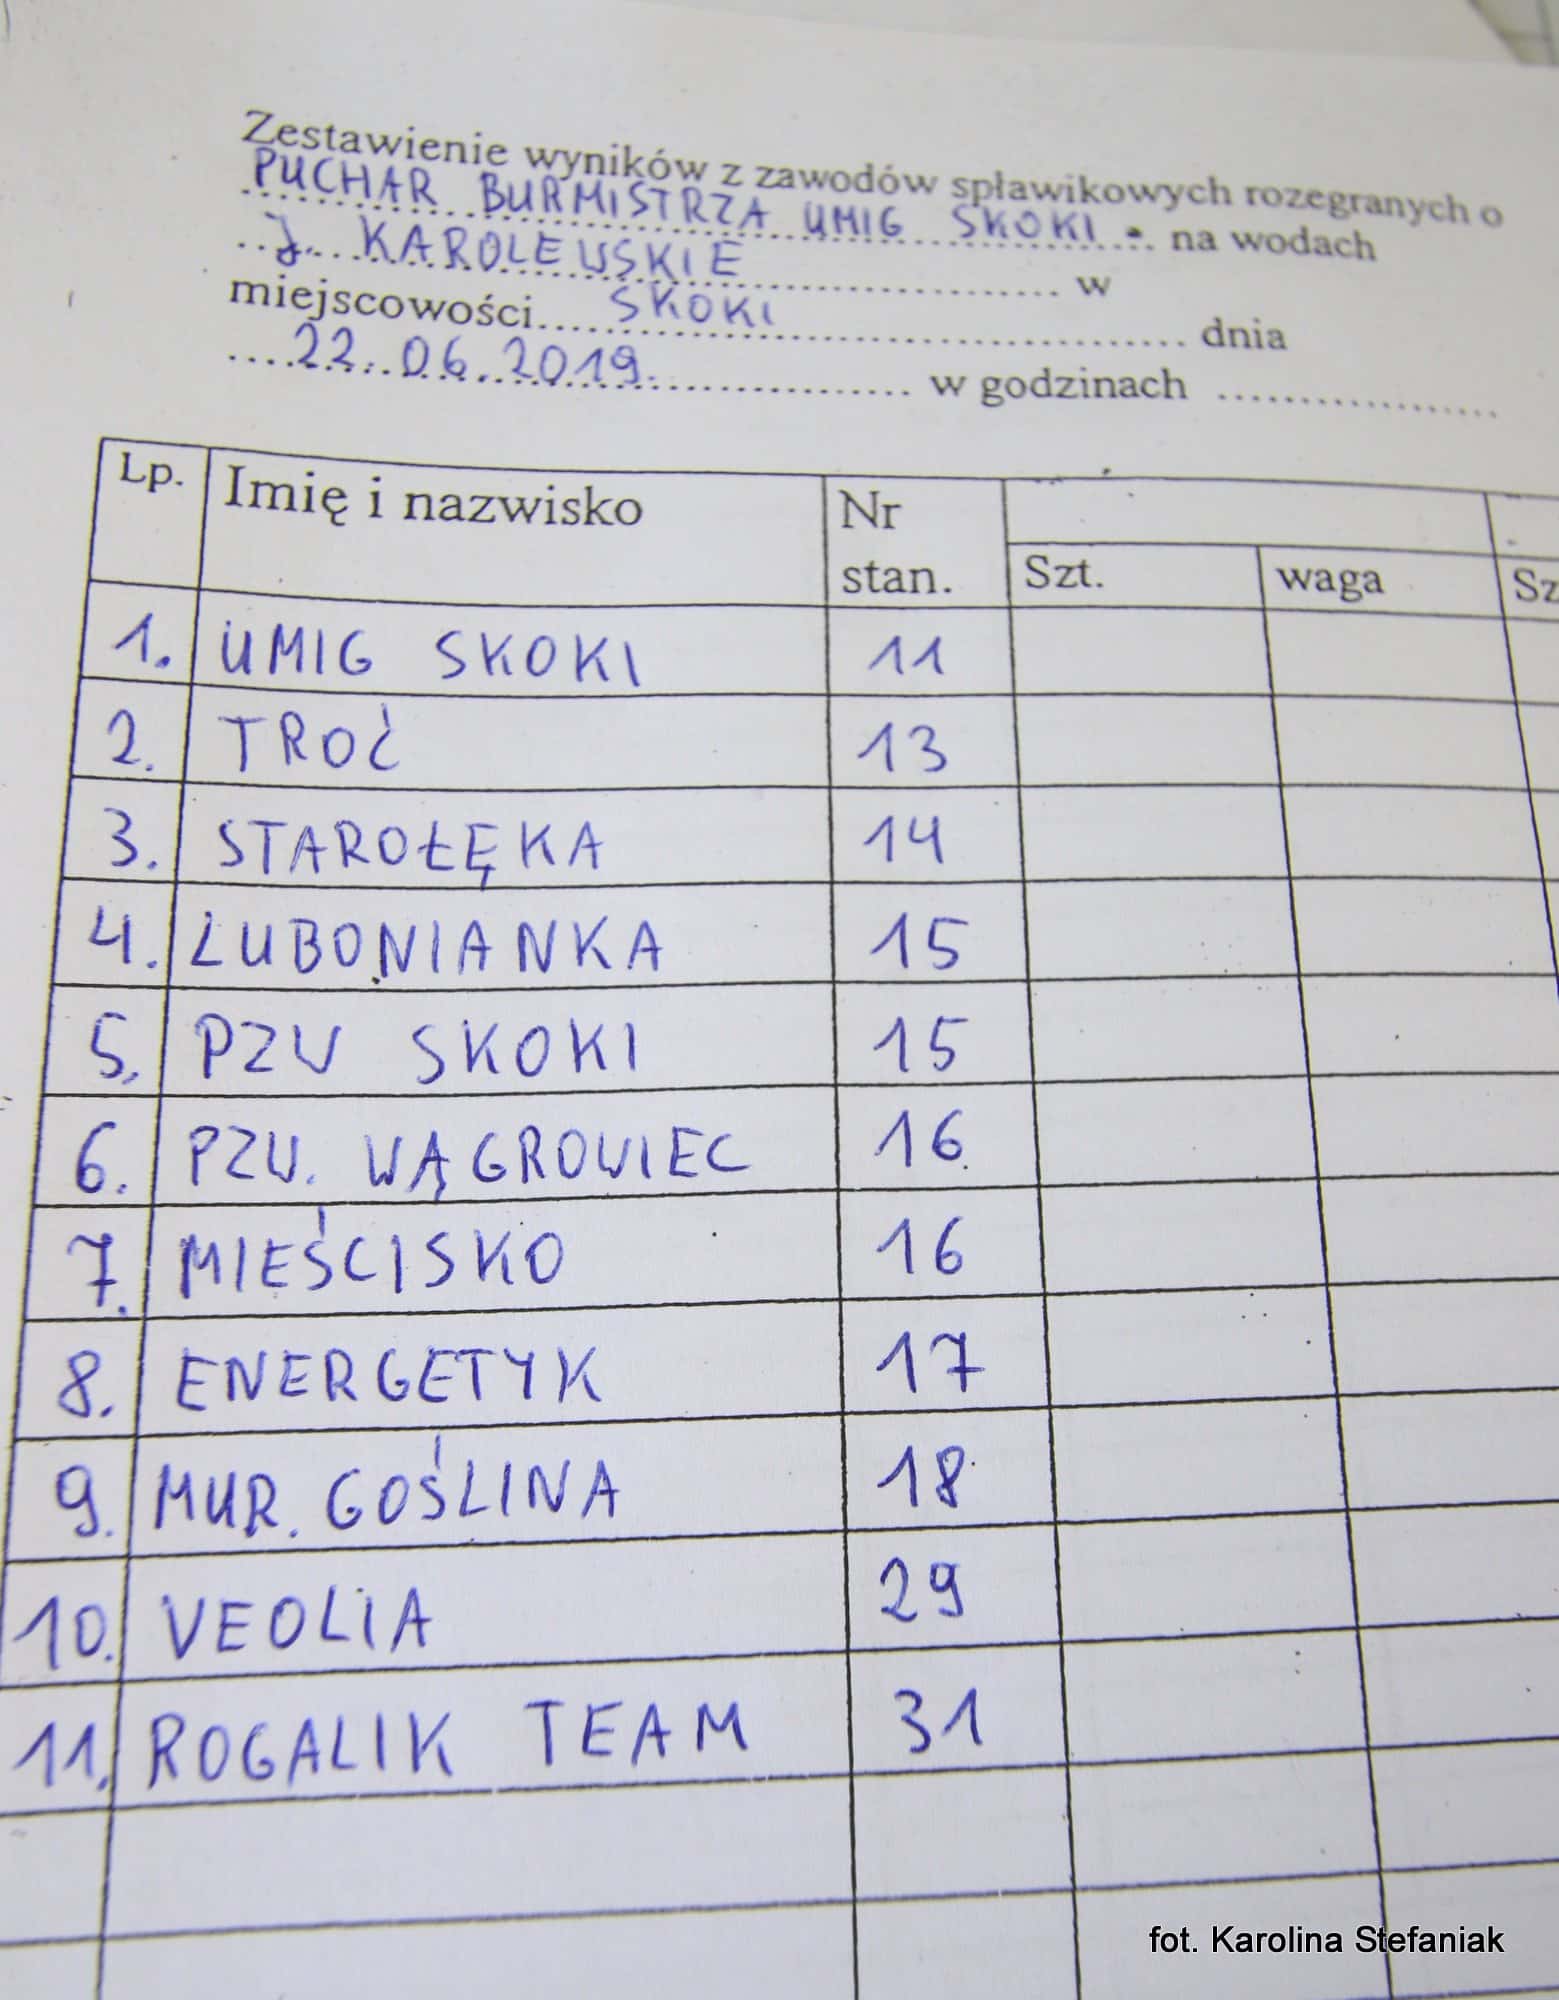 Zestawienie wyników z zawodów spławikowych rozegranych o
PUCHAR BURMISTRZA UMIG SKOKI na wodach
J. KAROLEWSKIE w
miejscowości SKOKI dnia
22.06.2019. w godzinach
Lp. Imię i nazwisko Nr stan. Szt. waga Sz
1. UMIG SKOKI 11
2. TROĆ 13
3. STAROŁĘKA 14
4. LUBONIANKA 15
5. PZW SKOKI 15
6. PZW. WĄGROWIEC 16
7. MIEŚCISKO 16
8. ENERGETYK 17
9. MUR. GOŚLINA 18
10. VEOLIA 29
11. ROGALIK TEAM 31
fot. Karolina Stefaniak